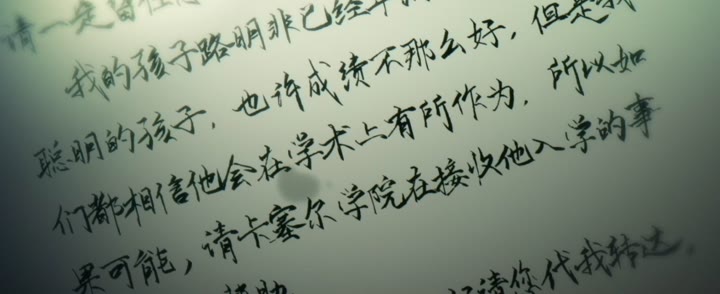 请一定留住
我的孩子路明非已经
聪明的孩子，也许成绩不那么好，但是我
们都相信他会在学术上有所作为，所以如
果可能，请卡塞尔学院在接收他入学的事
帮助
请您代我转达，